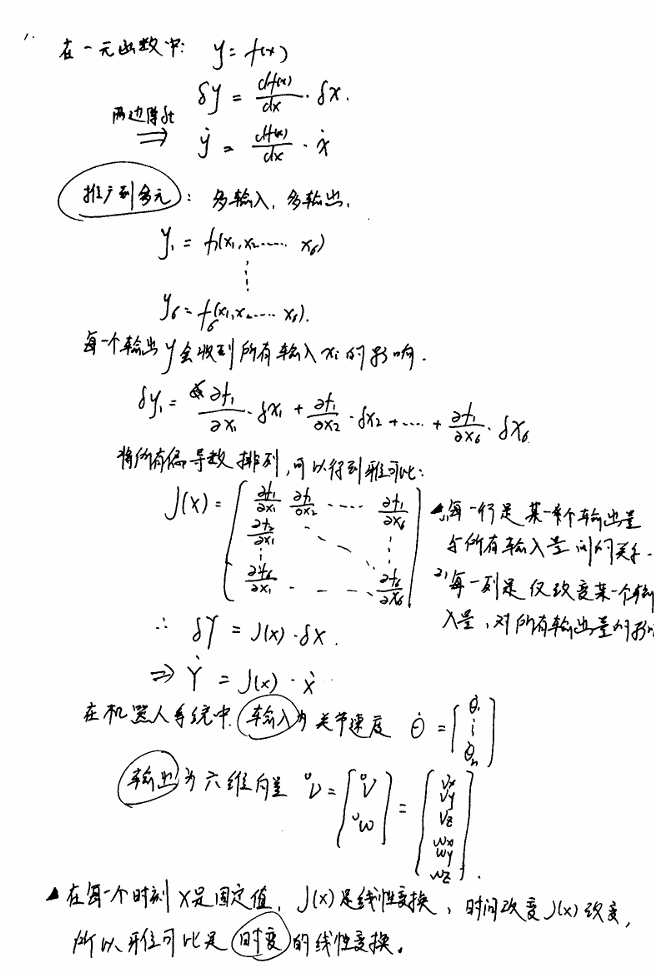 1.
在一元函数中: y = f(x)
δy = df(x)/dx · δx.
两边除δt ⇒ ẏ = df(x)/dx · ẋ
推广到多元: 多输入, 多输出,
y₁ = f₁(x₁, x₂ ⋯⋯ x₆)
⋮
y₆ = f₆(x₁, x₂ ⋯⋯ x₆).
每个输出y会收到所有输入xi的影响.
δy₁ = ∂f₁/∂x₁ · δx₁ + ∂f₁/∂x₂ · δx₂ + ⋯ + ∂f₁/∂x₆ · δx₆
将所有偏导数排列, 可以得到雅可比:
J(x) = [ ∂f₁/∂x₁ ∂f₁/∂x₂ ⋯⋯ ∂f₁/∂x₆
∂f₂/∂x₁
⋮ ⋱ ⋮
∂f₆/∂x₁ ⋯ ∂f₆/∂x₆ ]
每一行是某一个输出量
与所有输入量间的关系.
2) 每一列是仅改变某一个输
入量, 对所有输出量的影响
∴ δY = J(x) · δX.
⇒ Ẏ = J(x) · Ẋ
在机器人系统中, 输入为关节速度 Θ̇ = [ θ̇₁ ⋮ θ̇ₙ ]
输出为六维向量 ⁰ν = [ ⁰V ⁰ω ] = [ Vx Vy Vz ωx ωy ωz ].
▲在每一个时刻X是固定值, J(x)是线性变换, 时间改变J(x)改变,
所以雅可比是时变的线性变换.